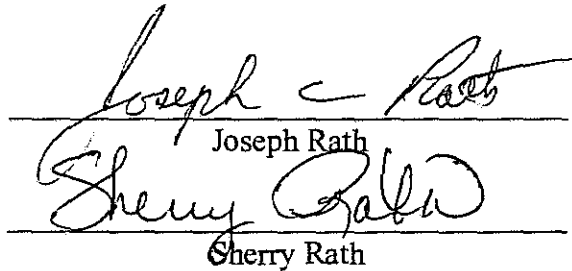 Joseph C Rath
Joseph Rath
Sherry Rath
Sherry Rath